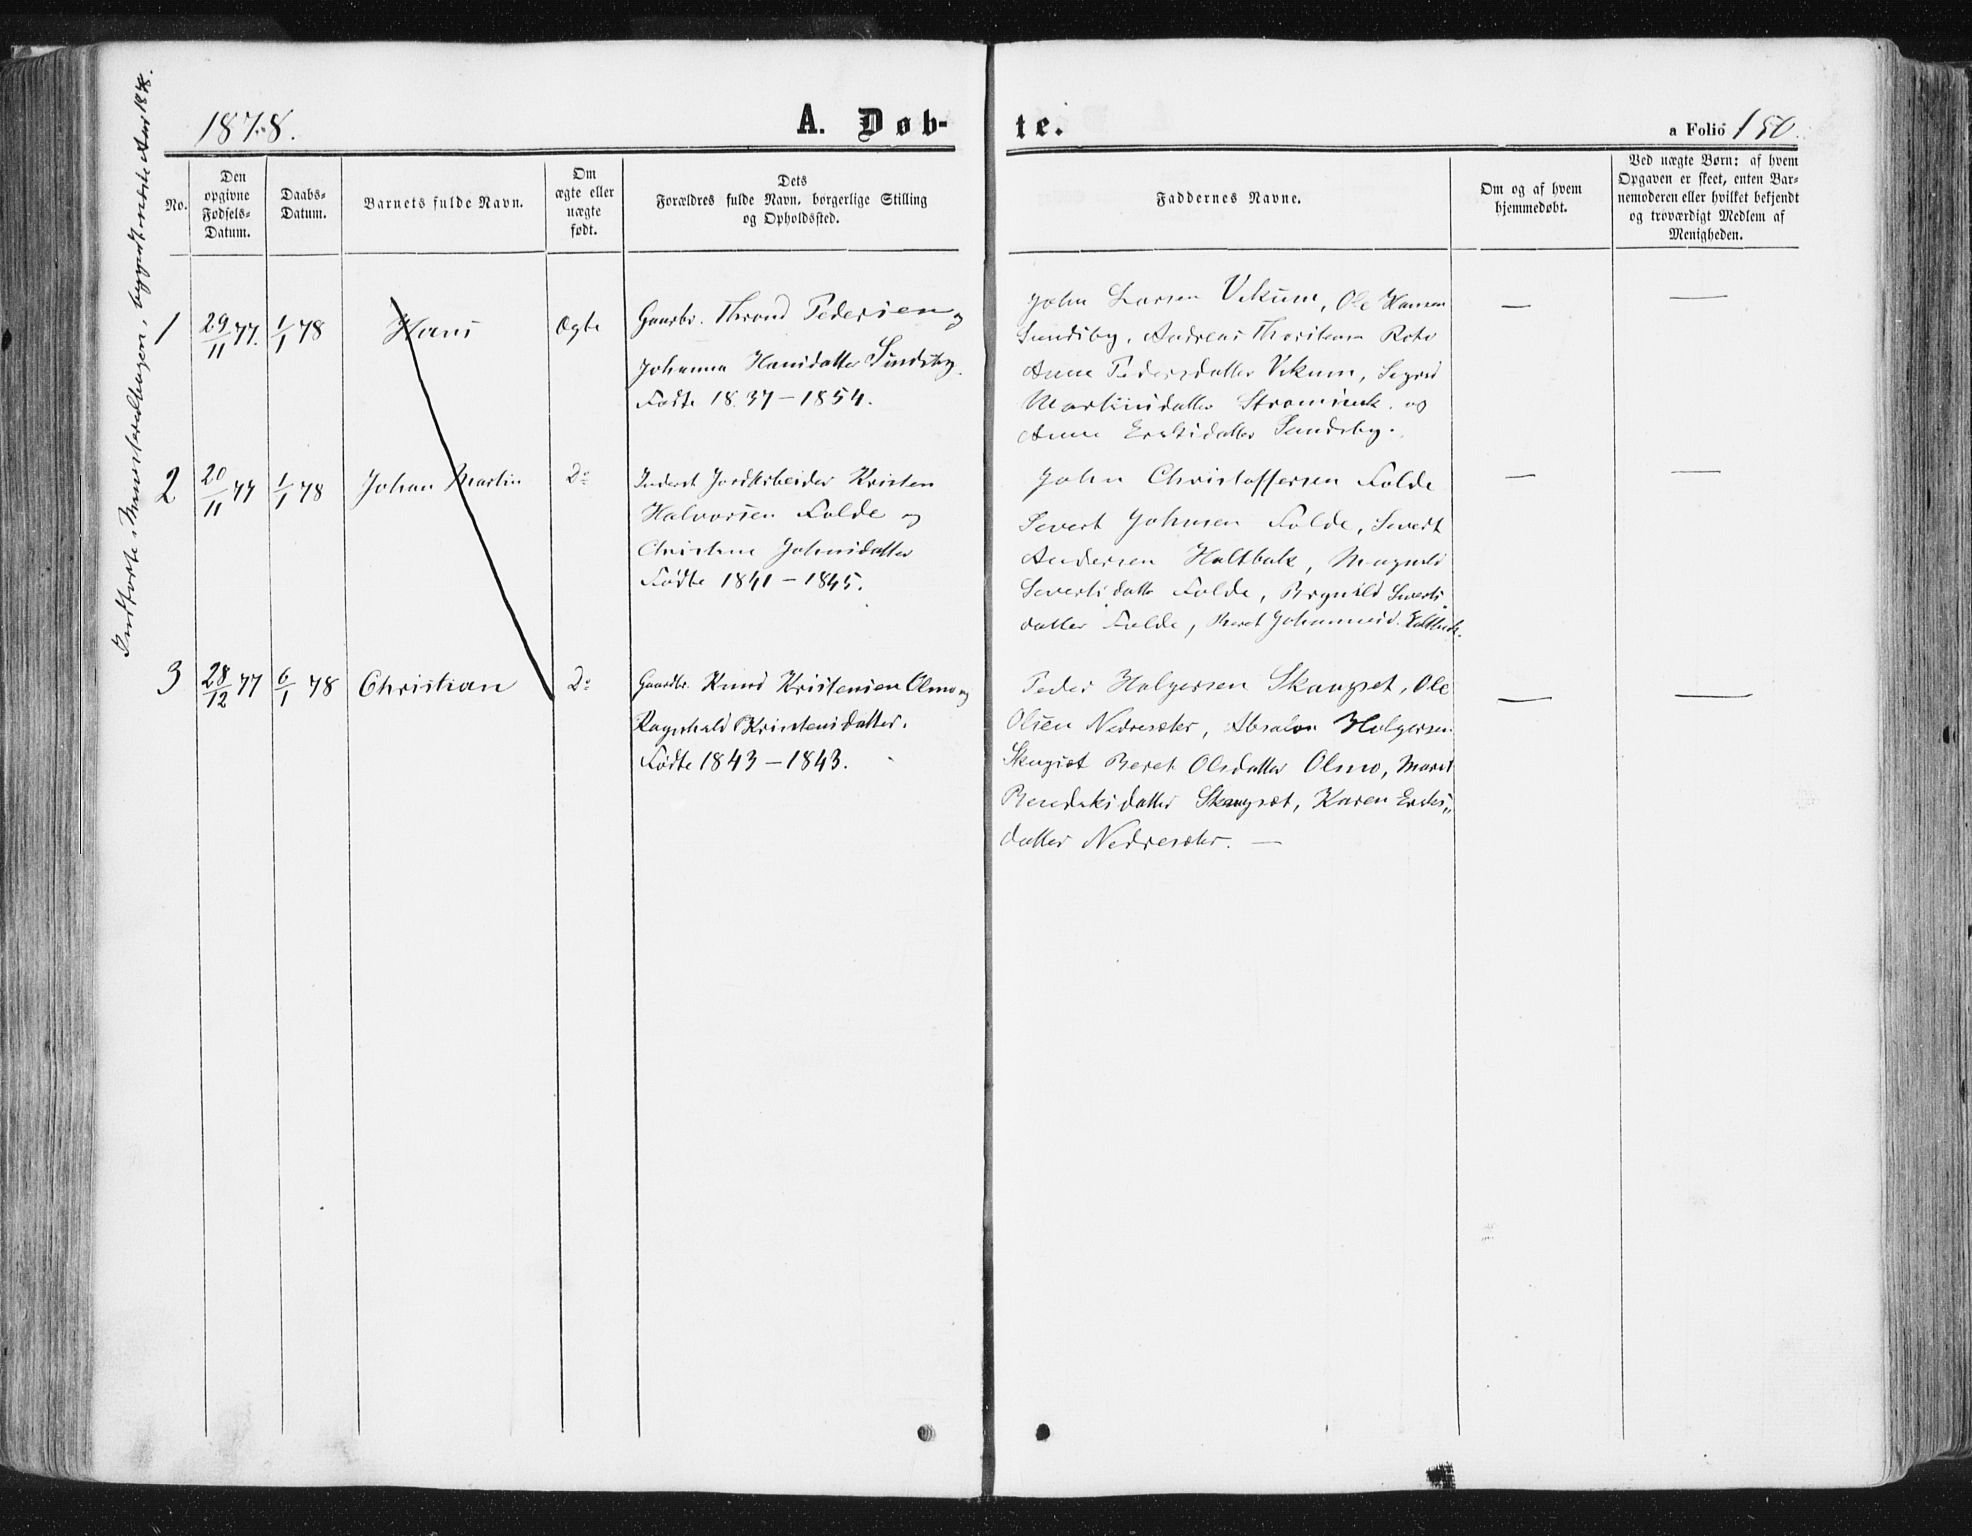 1878.
A. Døb-
te.
a Folio 150.
No.
Den
opgivne
Fødsels-
Datum.
Daabs-
Datum.
Barnets fulde Navn.
Om
ægte eller
uægte
født.
Dets
Forældres fulde Navn, borgerlige Stilling
og Opholdssted.
Faddernes Navne.
Om og af hvem
hjemmedøbt.
Ved uægte Børn: af hvem
Opgaven er skeet, enten Bar-
nemoderen eller hvilket bekjendt
og troværdigt Medlem af
Menigheden.
Indførte i Ministerialbogen, begyndt Aar 1878.
1
29/11 77.
1/1 78
Hans
Ægte
Gaardbr. Thrond Pedersen og
Johanna Hansdatter Sundsby.
Fødte 1837 - 1854.
John Larsen Vikum, Ole Hansen
Sundsby, Andreas Thorstensen
Anne Pedersdatter Vikum, Sigrid
Martinsdatter og
Anne Eriksdatter Sundsby.
—
—
2
20/11 77
1/1 78
Johan Martin
Do
Inderst Jordarbeider Kristen
Halvorsen Folde og
Christine Johnsdatter
Fødte 1841 - 1845.
John Christoffersen Folde
Severt Johnsen Folde, Severt
Andersen Holtbak, Magnild
Severtsdatter Folde, Brynild Severts
datter Folde, Beret Johannesd. Holtbak.
—
—
3
28/12 77
6/1 78
Christian
Do
Gaardbr. Knud Kristensen Olmo og
Ragnhild Kristensdatter.
Fødte 1843 - 1843.
Peder Holgersen Skangset, Ole
Olsen Nedresæter, Absalon Holgersen
Skangset Beret Olsdatter Olmo, Marit
Bendiksdatter Skangset, Karen Eriks„
datter Nedresæter. —
—
—